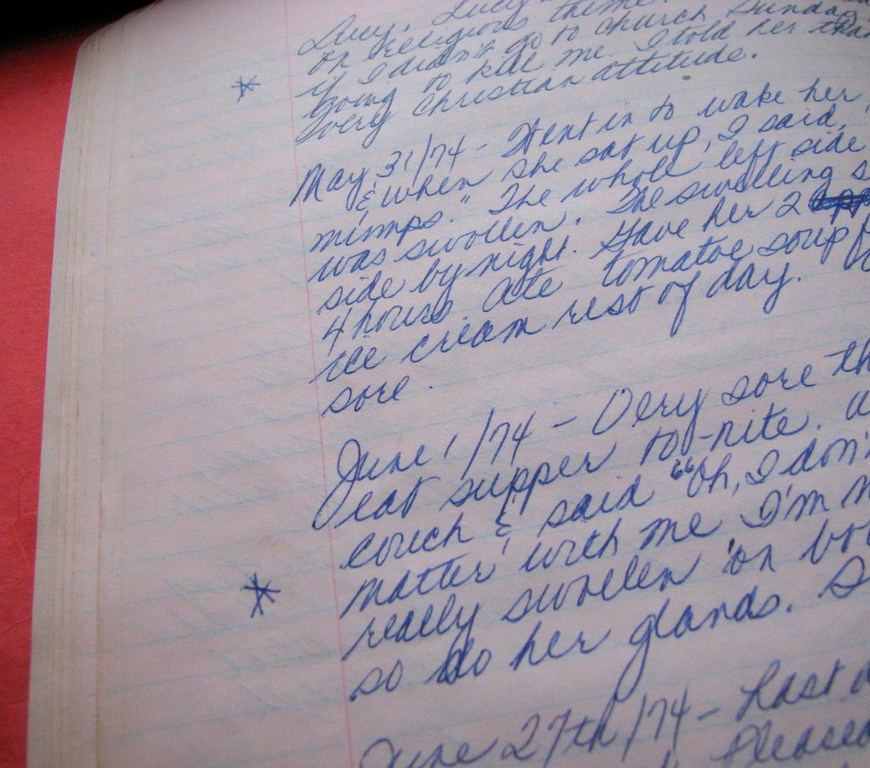 Lucy, Lucy
on religious theme.
if I didn't go to church Sunday
going to kill me. I told her that
very Christian attitude.
May 31/74 - Went in to wake her
& when she sat up, I said,
mumps." The whole left side
was swollen. The swelling
side by night. Gave her 2
4 hours ate tomatoe soup
ice cream rest of day.
sore.
June 1/74 - Very sore
eat supper to-nite.
couch & said "Oh, I don't
matter with me I'm
really swollen on
so do her glands.
June 27th/74 - Last